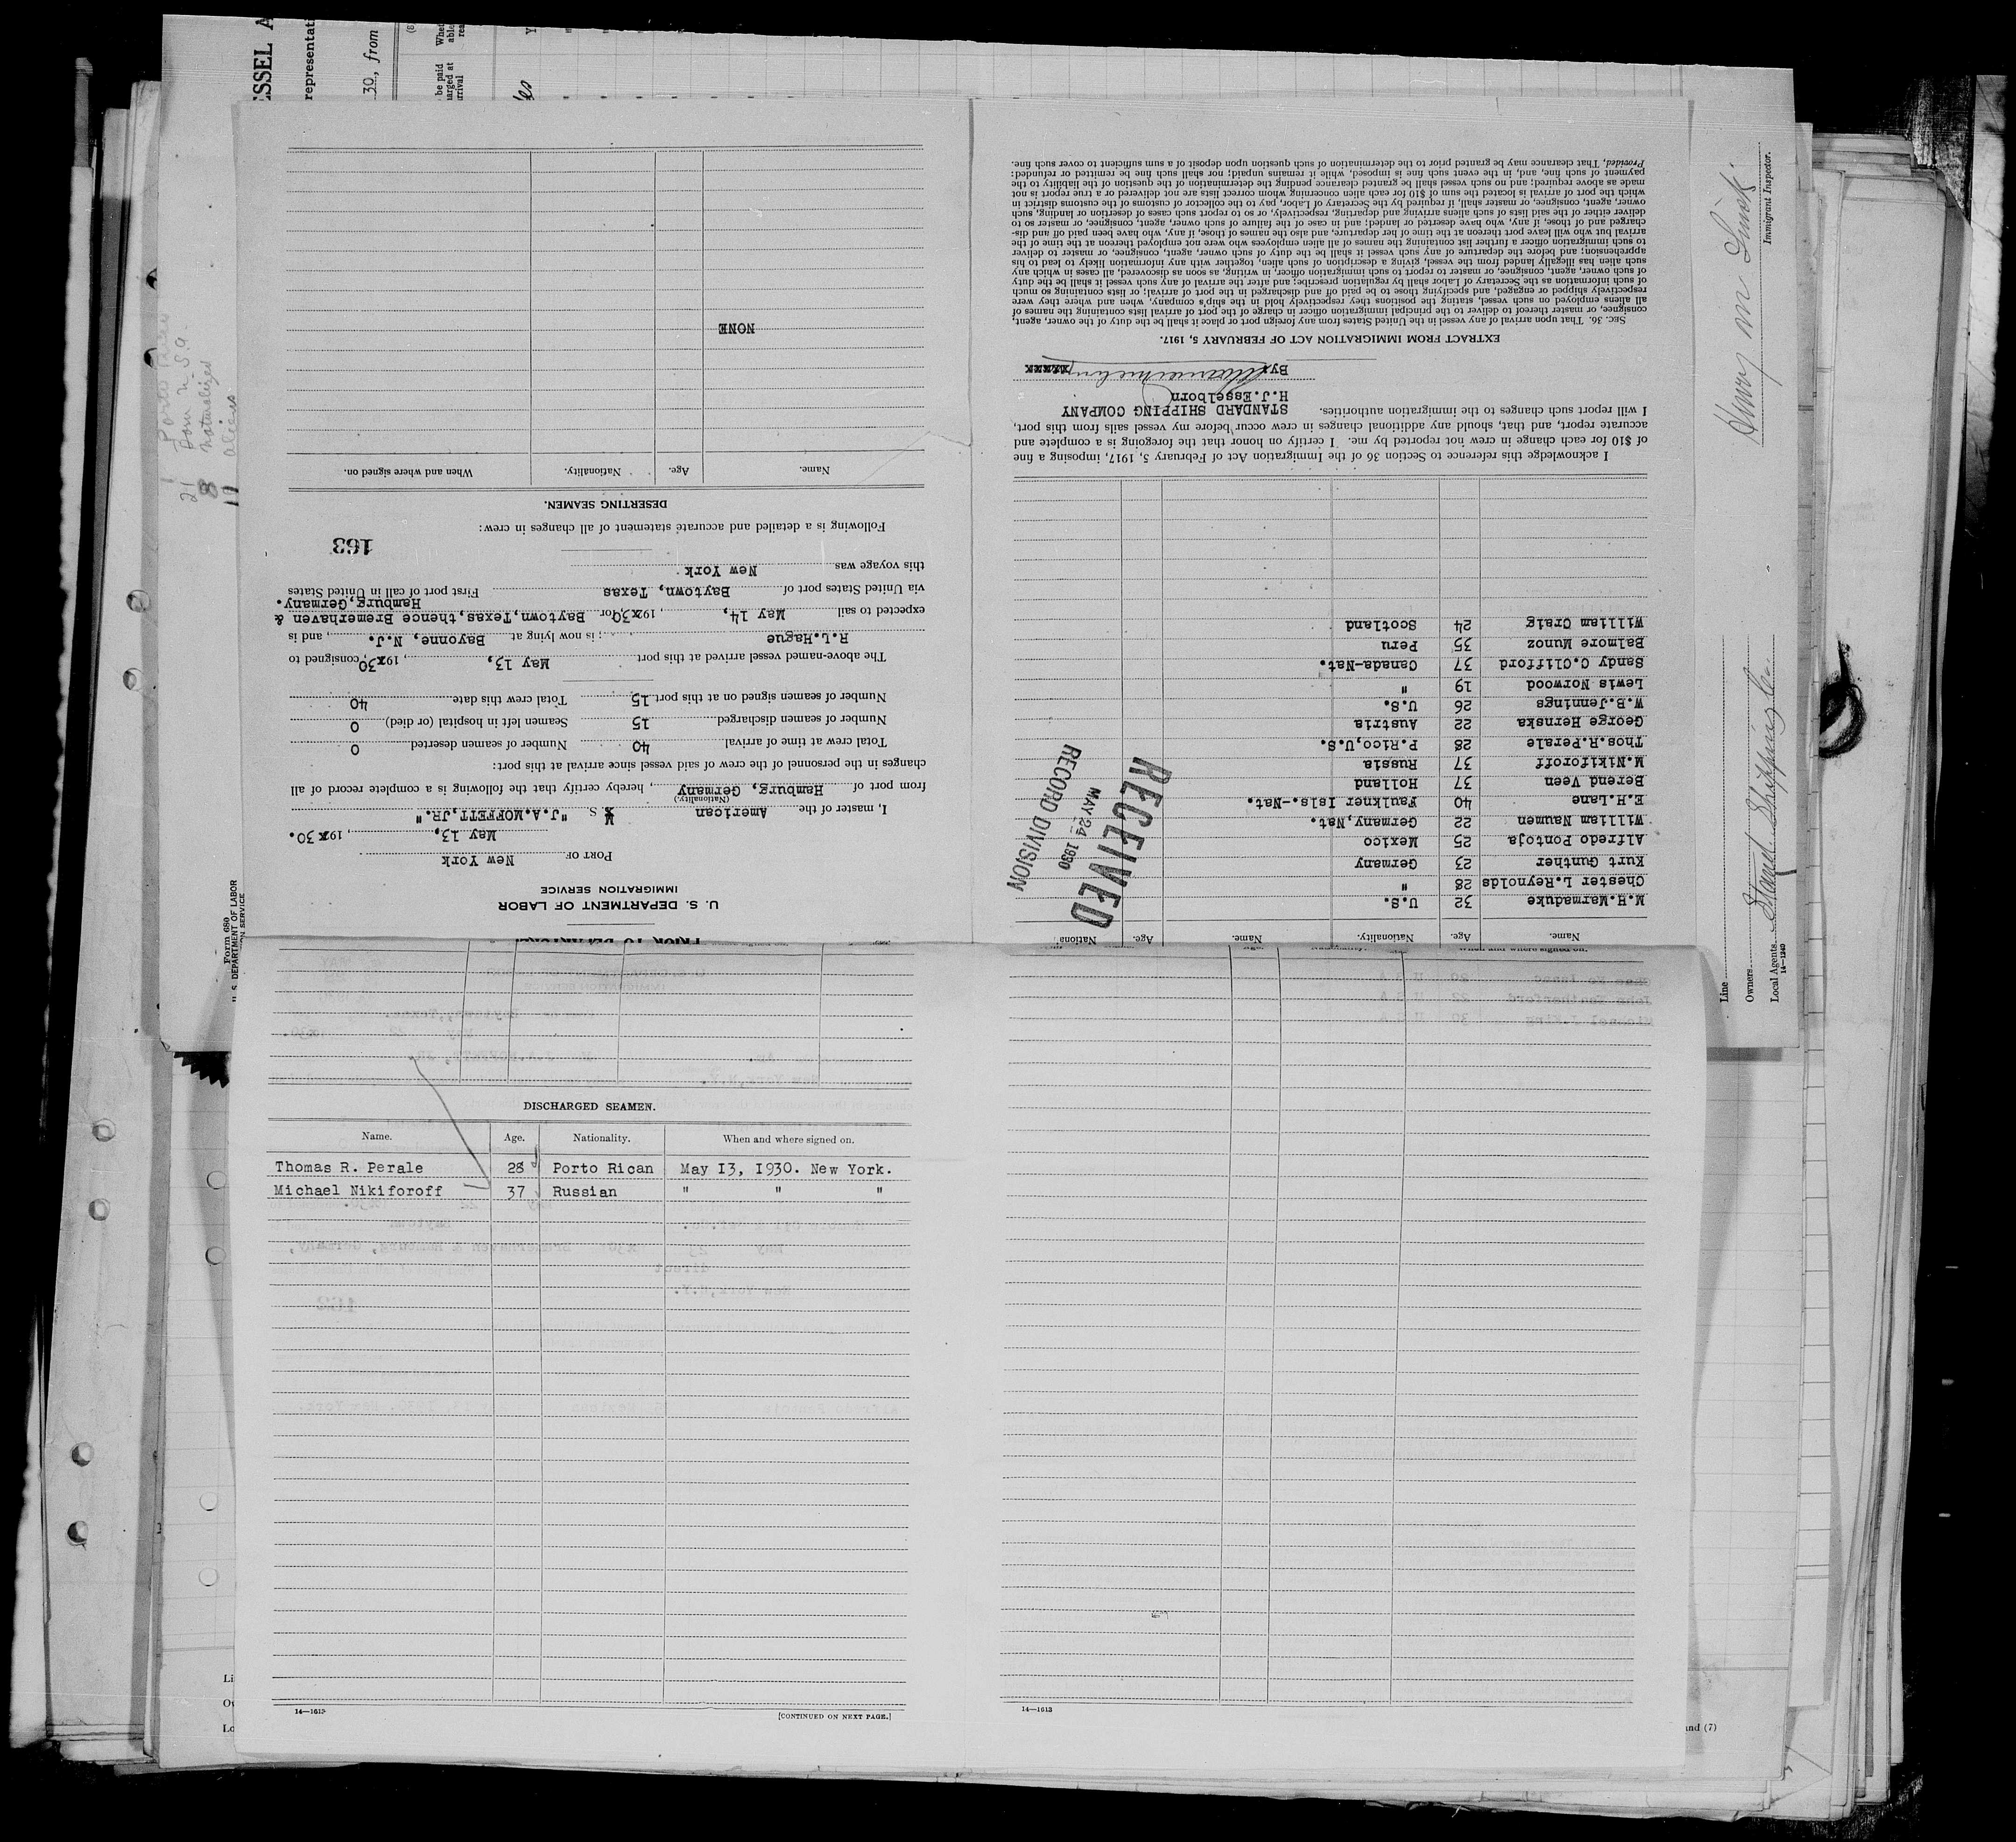 PRIOR TO DEPARTURE
U. S. DEPARTMENT OF LABOR
IMMIGRATION SERVICE
PORT OF New York
May 13, , 19x30.
I, master of the American S. S. "J.A.MOFFETT,JR."
(Nationality.)
from port of Hamburg, Germany , hereby certify that the following is a complete record of all
changes in the personnel of the crew of said vessel since arrival at this port:
Total crew at time of arrival 40 Number of seamen deserted 0
Number of seamen discharged 15 Seamen left in hospital (or died) 0
Number of seamen signed on at this port 15 Total crew this date 40
The above-named vessel arrived at this port May 13, , 19x30, consigned to
R.L.Hague ; is now lying at Bayonne, N.J. , and is
expected to sail May 14, , 19x30 for Baytown,Texas,thence Bremerhaven &
Hamburg,Germany.
via United States port of Baytown, Texas First port of call in United States
this voyage was New York
163
Following is a detailed and accurate statement of all changes in crew:
DESERTING SEAMEN.
Name. Age. Nationality. When and where signed on.
NONE
Name. Age. Nationality. Name. Age. Nationa
M.H.Marmaduke 32 U.S.
Chester L.Reynolds 28 "
Kurt Gunther 23 Germany
Alfredo Pontoja 25 Mexico
William Naumen 22 Germany,Nat.
E.H.Lane 40 Faulkner Isls.-Nat.
Berend Veen 37 Holland
M.Nikiforoff 37 Russia
Thos.R.Perale 28 P.Rico,U.S.
George Hernska 22 Austria
W.B.Jennings 26 U.S.
Lewis Norwood 19 "
Sandy C.Clifford 37 Canada-Nat.
Balmore Munoz 35 Peru
William Craig 24 Scotland
RECEIVED
MAY 24 1930
RECORD DIVISION
I acknowledge this reference to Section 36 of the Immigration Act of February 5, 1917, imposing a fine
of $10 for each change in crew not reported by me. I certify on honor that the foregoing is a complete and
accurate report, and that, should any additional changes in crew occur before my vessel sails from this port,
I will report such changes to the immigration authorities. STANDARD SHIPPING COMPANY
H.J.Esselborn
By
EXTRACT FROM IMMIGRATION ACT OF FEBRUARY 5, 1917.
SEC. 36. That upon arrival of any vessel in the United States from any foreign port or place it shall be the duty of the owner, agent,
consignee, or master thereof to deliver to the principal immigration officer in charge of the port of arrival lists containing the names of
all aliens employed on such vessel, stating the positions they respectively hold in the ship's company, when and where they were
respectively shipped or engaged, and specifying those to be paid off and discharged in the port of arrival; or lists containing so much
of such information as the Secretary of Labor shall by regulation prescribe; and after the arrival of any such vessel it shall be the duty
of such owner, agent, consignee, or master to report to such immigration officer, in writing, as soon as discovered, all cases in which any
such alien has illegally landed from the vessel, giving a description of such alien, together with any information likely to lead to his
apprehension; and before the departure of any such vessel it shall be the duty of such owner, agent, consignee, or master to deliver
to such immigration officer a further list containing the names of all alien employees who were not employed thereon at the time of the
arrival but who will leave port thereon at the time of her departure, and also the names of those, if any, who have been paid off and dis-
charged and of those, if any, who have deserted or landed; and in case of the failure of such owner, agent, consignee, or master so to
deliver either of the said lists of such aliens arriving and departing, respectively, or so to report such cases of desertion or landing, such
owner, agent, consignee, or master, shall, if required by the Secretary of Labor, pay to the collector of customs of the customs district in
which the port of arrival is located the sum of $10 for each alien concerning whom correct lists are not delivered or a true report is not
made as above required; and no such vessel shall be granted clearance pending the determination of the question of the liability to the
payment of such fine, and, in the event such fine is imposed, while it remains unpaid; nor shall such fine be remitted or refunded:
Provided, That clearance may be granted prior to the determination of such question upon deposit of a sum sufficient to cover such fine.
DISCHARGED SEAMEN.
Name. Age. Nationality. When and where signed on.
Thomas R. Perale 28 Porto Rican May 13, 1930. New York.
Michael Nikiforoff 37 Russian " " "
14—1613
[CONTINUED ON NEXT PAGE.]
14—1613
1 Porto Rican
21 born U.S.A.
8 naturalized
11 aliens
Form 680
U. S. DEPARTMENT OF LABOR
ON SERVICE
ESSEL A
representati
30, from
be paid
arged at
arrival
Immigrant Inspector.
Line
Owners
Local Agents Stand. Shipping Co.
14—1240
and (7)